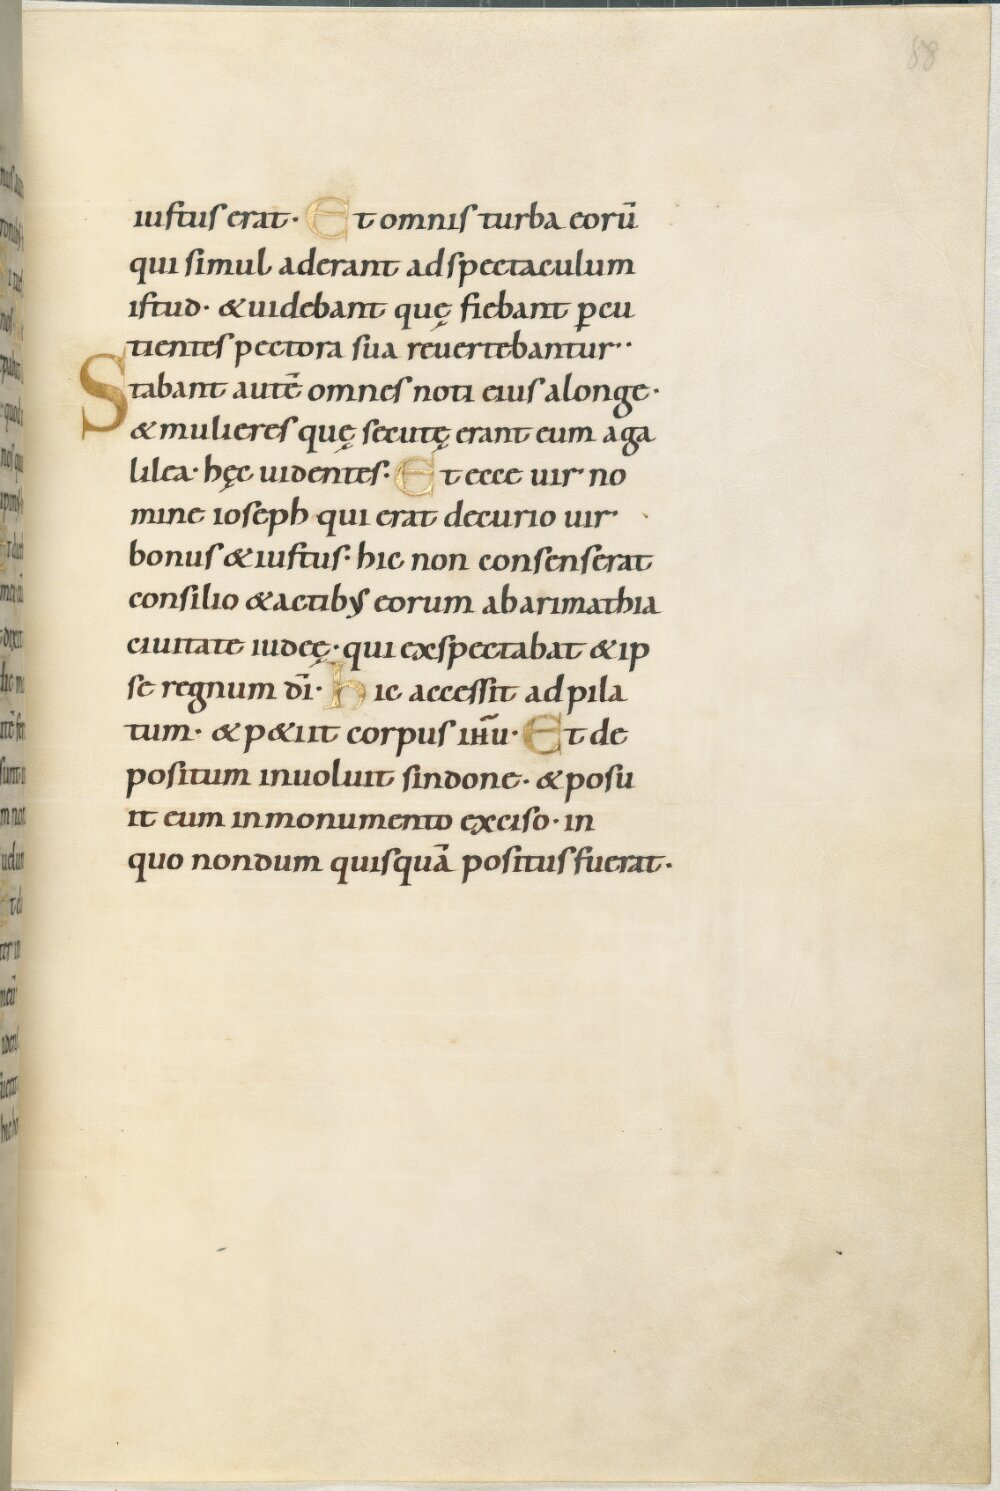 58
iuſtuſ erat· Et omniſ turba eorū
qui ſimul aderant adſpectaculum
iſtud· &uidebant quę fiebant ꝑcu
tienteſ pectora ſua reuertebantur··
Stabant autē omneſ noti eiuſ alonge·
&muliereſ quę ſecutę erant eum aga
lilea· hęc uidenteſ· Et ecce uir no
mine ioſeph qui erat decurio uir
bonuſ &iuſtuſ· hic non conſenſerat
conſilio &actibꝰ eorum abarimathia
ciuitate iudeę· qui exſpectabat &ip
ſe regnum dī· hic acceſſit adpila
tum· &p&iit corpuſ ihū· Et de
poſitum inuoluit ſindone· &poſu
it eum inmonumento exciſo· in
quo nondum quiſquā poſituſ fuerat·